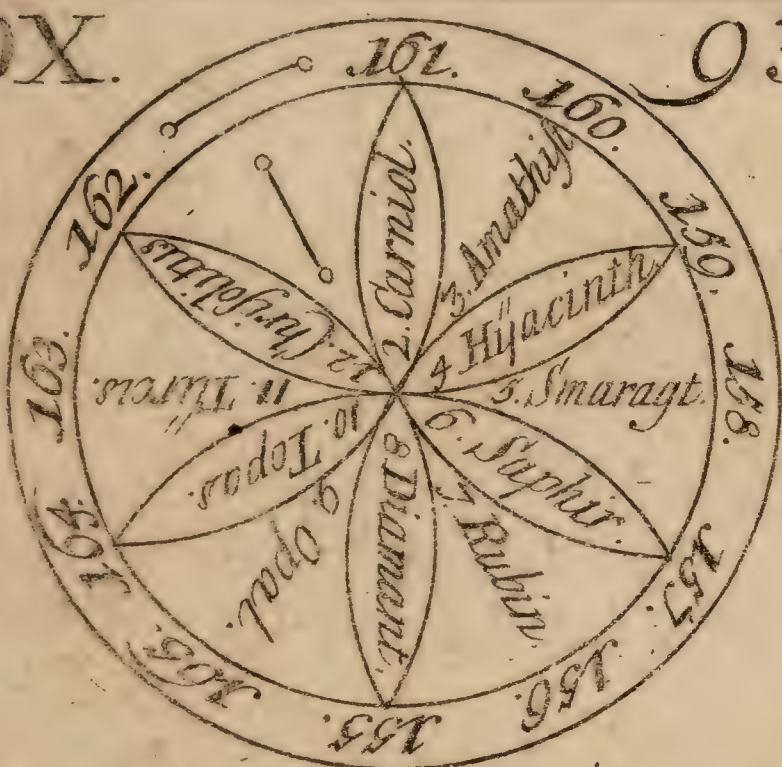 X.
93
161.
160.
159.
158.
157.
156.
155.
165.
164.
163.
162.
2. Carniol.
3. Amathiſt
4 Hÿacinth.
5. Smaragt.
6. Saphir.
7. Rubin.
8 Diamant.
9. Opal.
10. Topas.
11. Türcis.
12. Chriſolitus